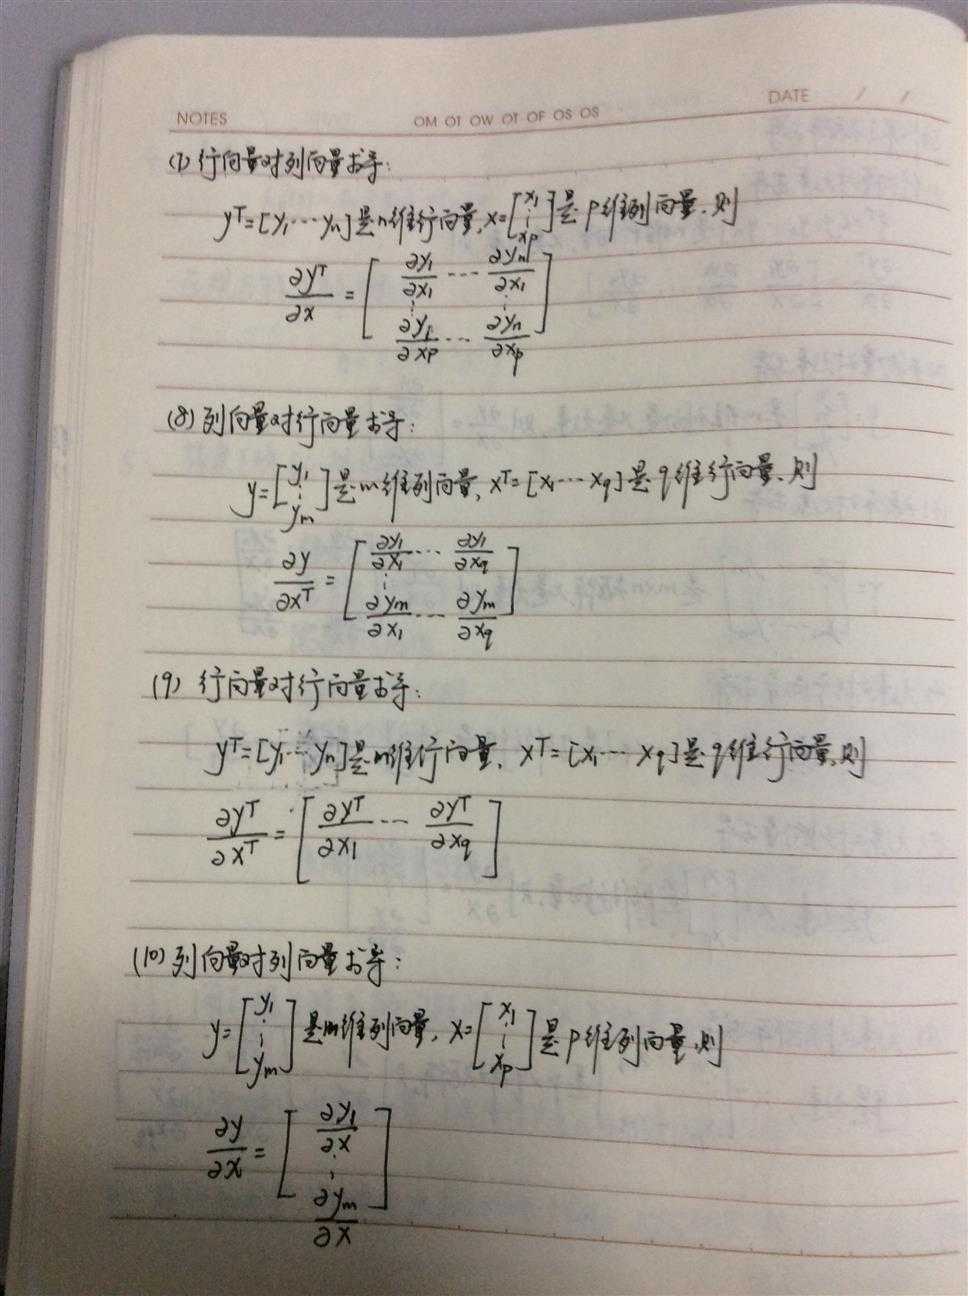 NOTES OM OT OW OT OF OS OS DATE / /
(7) 行向量对列向量求导:
yᵀ=[y₁…yₙ]是n维行向量,x=[x₁ ⋮ xₚ]是p维列向量,则
∂yᵀ/∂x = [∂y₁/∂x₁ … ∂yₙ/∂x₁ ⋮ ⋮ ∂y₁/∂xₚ … ∂yₙ/∂xₚ]
(8) 列向量对行向量求导:
y=[y₁ ⋮ yₘ]是m维列向量, xᵀ=[x₁…x_q]是q维行向量,则
∂y/∂xᵀ = [∂y₁/∂x₁ … ∂y₁/∂x_q ⋮ ∂yₘ/∂x₁ … ∂yₘ/∂x_q]
(9) 行向量对行向量求导:
yᵀ=[y₁…yₙ]是n维行向量, xᵀ=[x₁…x_q]是q维行向量,则
∂yᵀ/∂xᵀ = [∂yᵀ/∂x₁ … ∂yᵀ/∂x_q]
(10) 列向量对列向量求导:
y=[y₁ ⋮ yₘ]是m维列向量, x=[x₁ ⋮ xₚ]是p维列向量,则
∂y/∂x = [∂y₁/∂x ⋮ ∂yₘ/∂x]